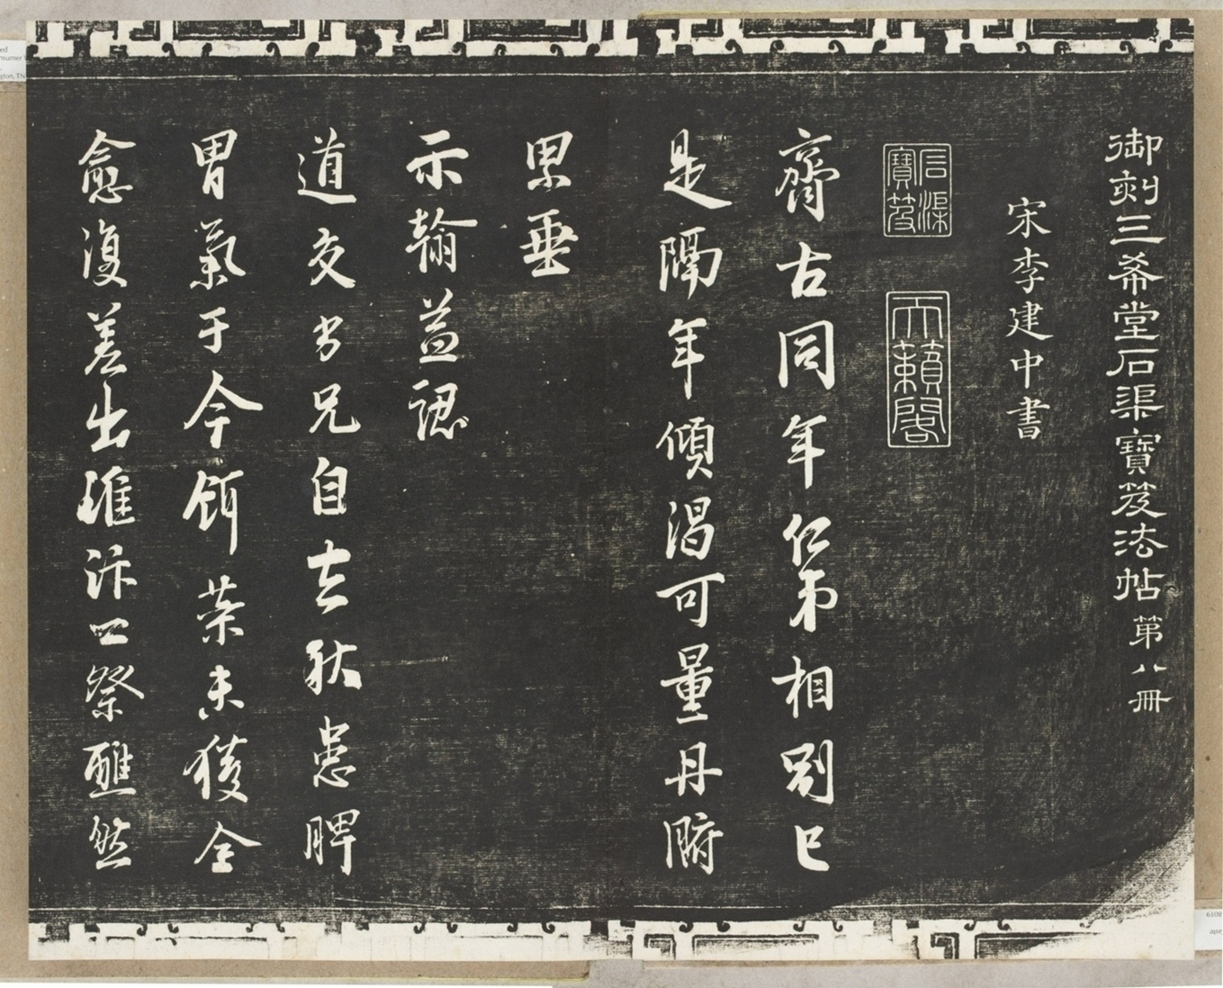 御刻三希堂石渠寶笈法帖第八冊
宋李建中書
石渠寶笈
天籟閣
齊古同年仁弟相別已
是隔年傾渴可量丹腑
累垂
示翰益認
道交劣兄自去秋患脾
胃氣于今餌藥未獲全
愈復差出汴口祭醮然